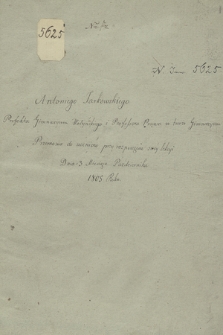 5625
N. Inw 5625
Antoniego Jarkowskiego
Prefekta Gimnazium Wołyńskiego i Professora w tém Gimnazium
Przemowa do uczniów przy rozpoczęciu swej lekcyi
Dnia 3 Miesiąca Października
1805 Roku